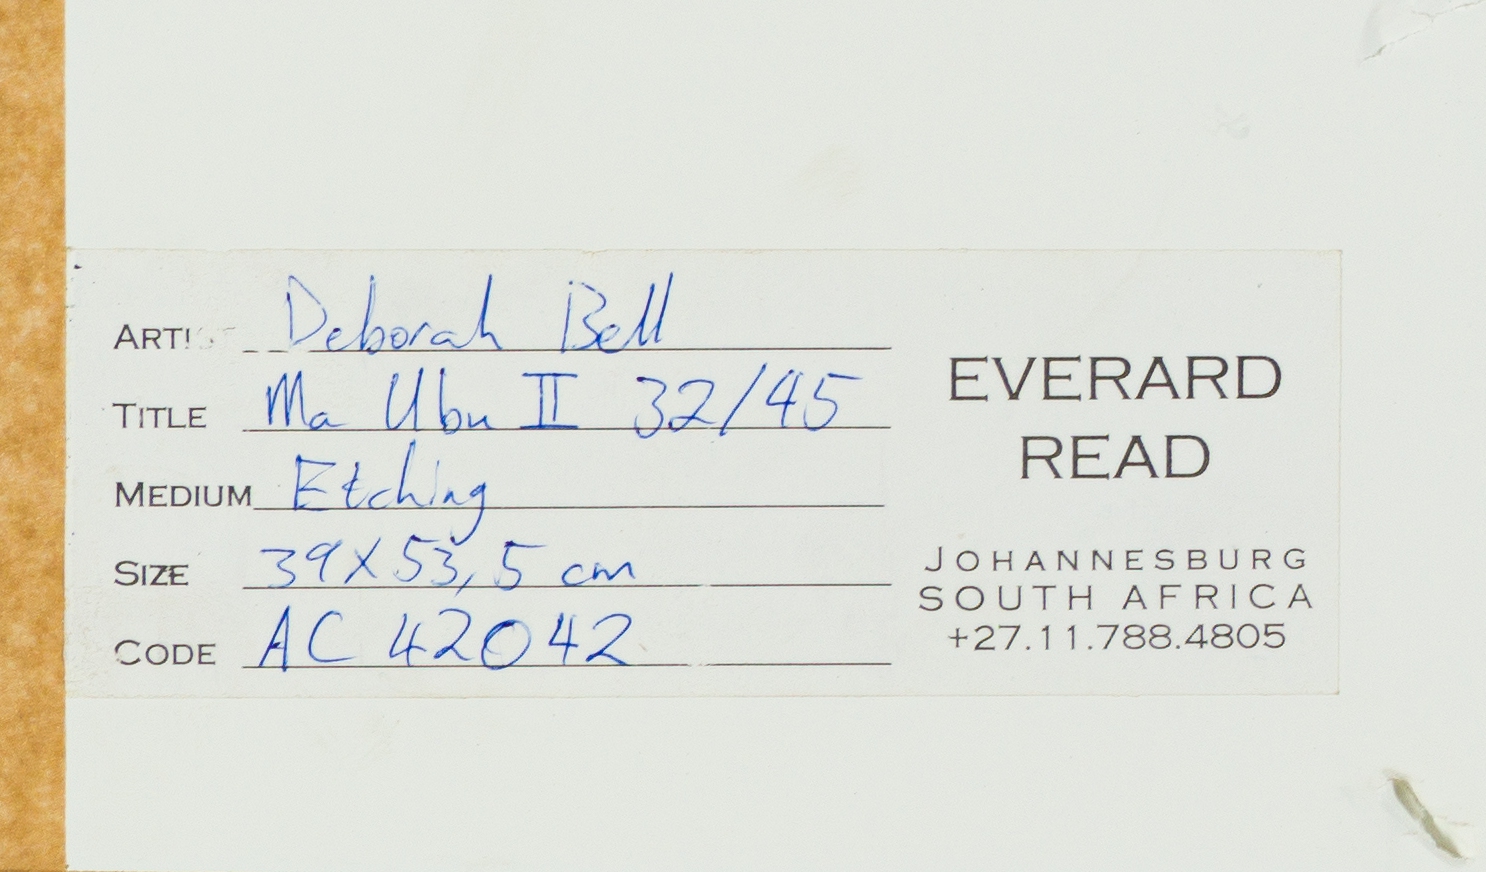 ARTIST Deborah Bell
TITLE Ma Ubu II 32/45
MEDIUM Etching
SIZE 39X53,5 cm
CODE AC 42042
EVERARD
READ
JOHANNESBURG
SOUTH AFRICA
+27.11.788.4805